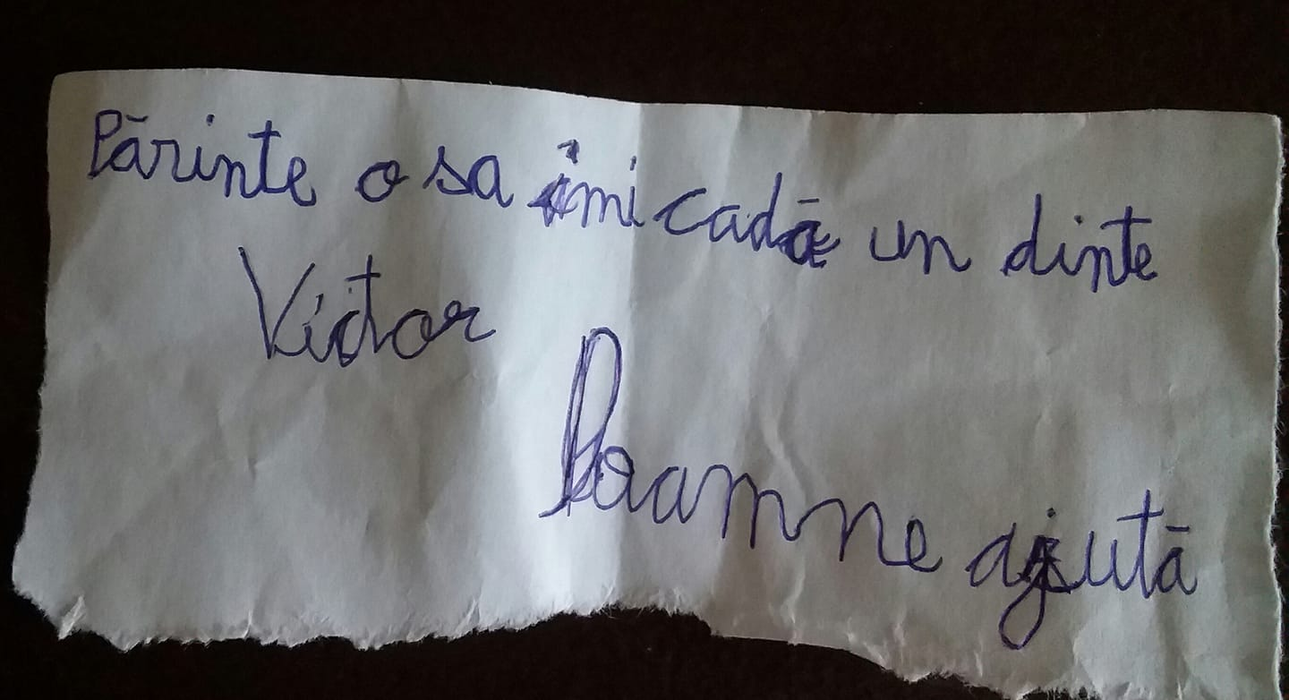 Părinte o sa îmi cadă un dinte
Victor
Doamne ajută